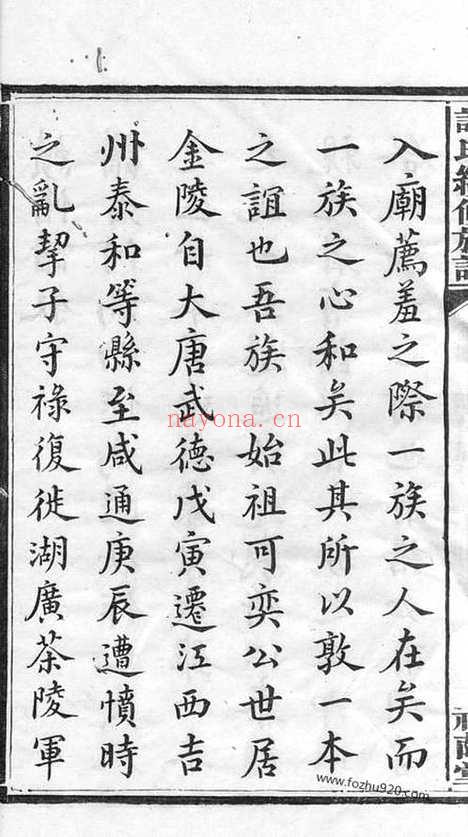 入廟薦羞之際一族之人在矣而
一族之心和矣此其所以敦一本
之誼也吾族 始祖可奕公世居
金陵自大唐武德戊寅遷江西吉
州泰和等縣至咸通庚辰遭憤時
之亂挈子守祿復徙湖廣茶陵軍
nayona.cn
www.fozhu920.com